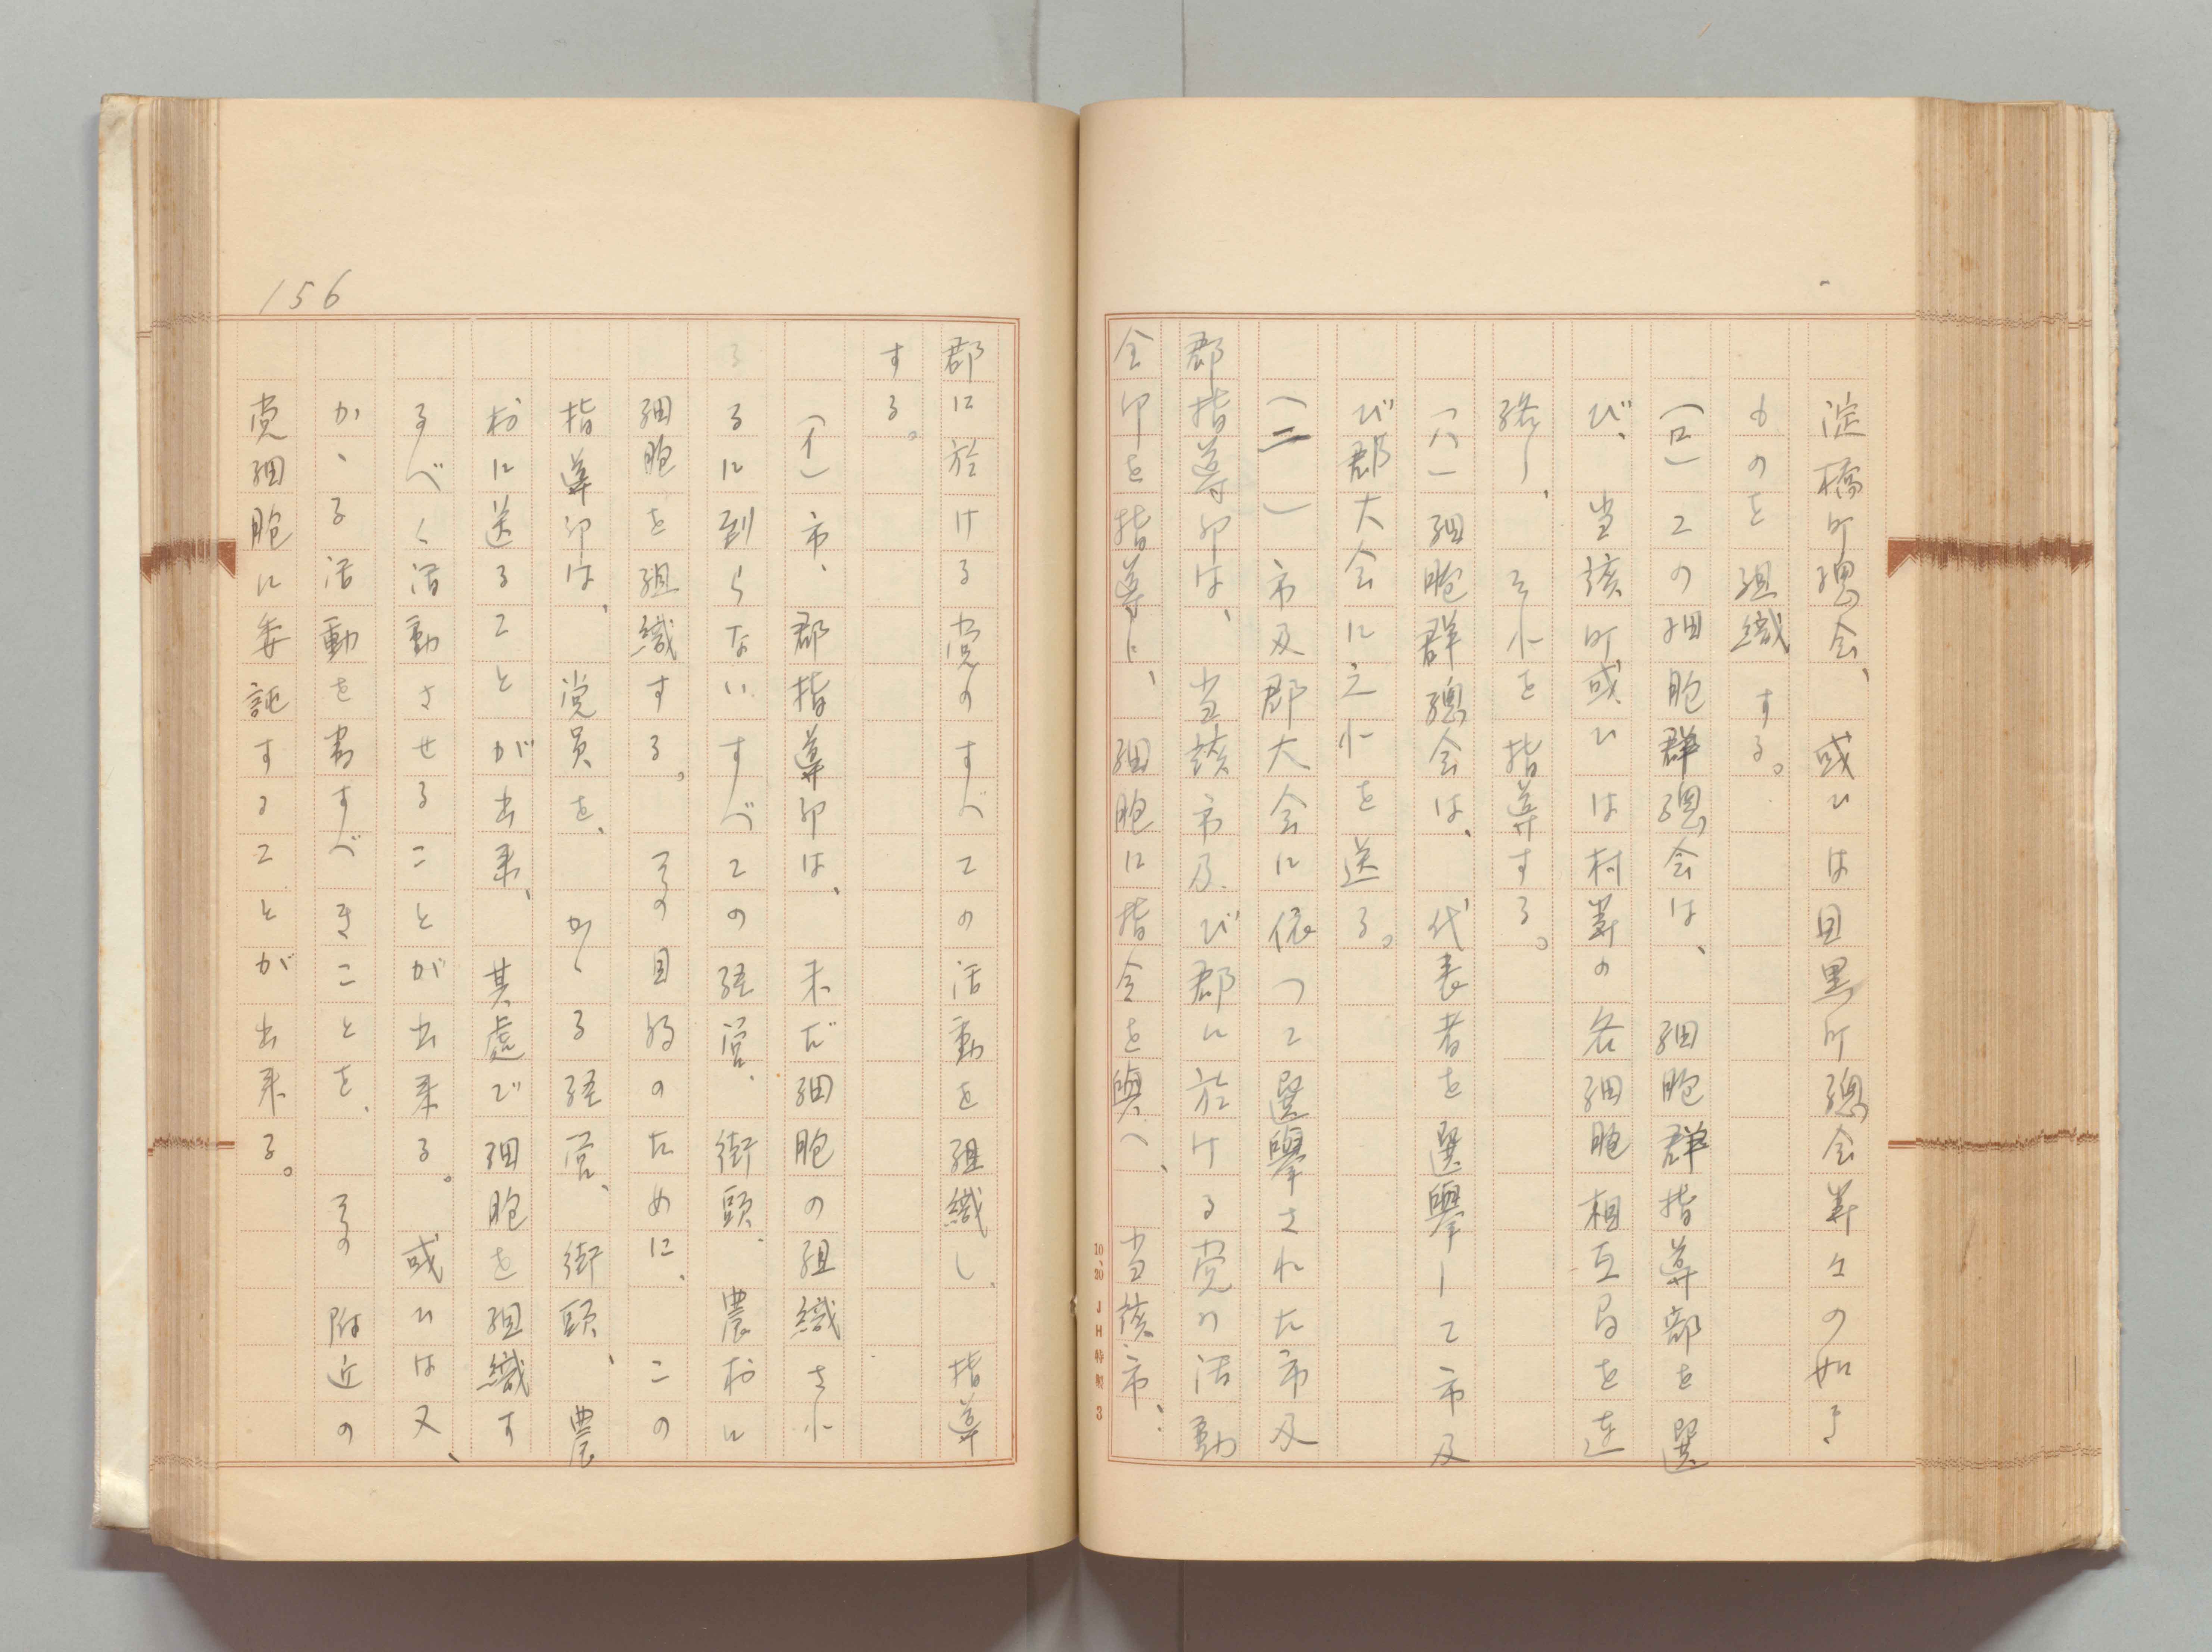 淀橋町總会、或ひは目黒町總会等々の如き
ものを組織する。
(ロ)この細胞群總会は、細胞群指導部を選
び、当該町或ひは村等の各細胞相互間を連
絡し、それを指導する。
(ハ)細胞群總会は、代表者を選擧して市及
び郡大会に之れを送る。
(二)市及郡大会に依つて選擧された市及
郡指導部は、当該市及び郡に於ける党の活動
全部を指導し、細胞に指令を與へ、当該市、
10,20 JH特製 3
156
郡に於ける党のすべての活動を組織し、指導
する。
(イ)市、郡指導部は、未だ細胞の組織され
るに到らないすべての経営、街頭、農村に
細胞を組織する。その目的のために、この
指導部は、党員を、かゝる経営、街頭、農
村に送ることが出来、其處で細胞を組織す
るべく活動させることが出来る。或ひは又、
かゝる活動を為すべきことを、その附近の
党細胞に委託することが出来る。